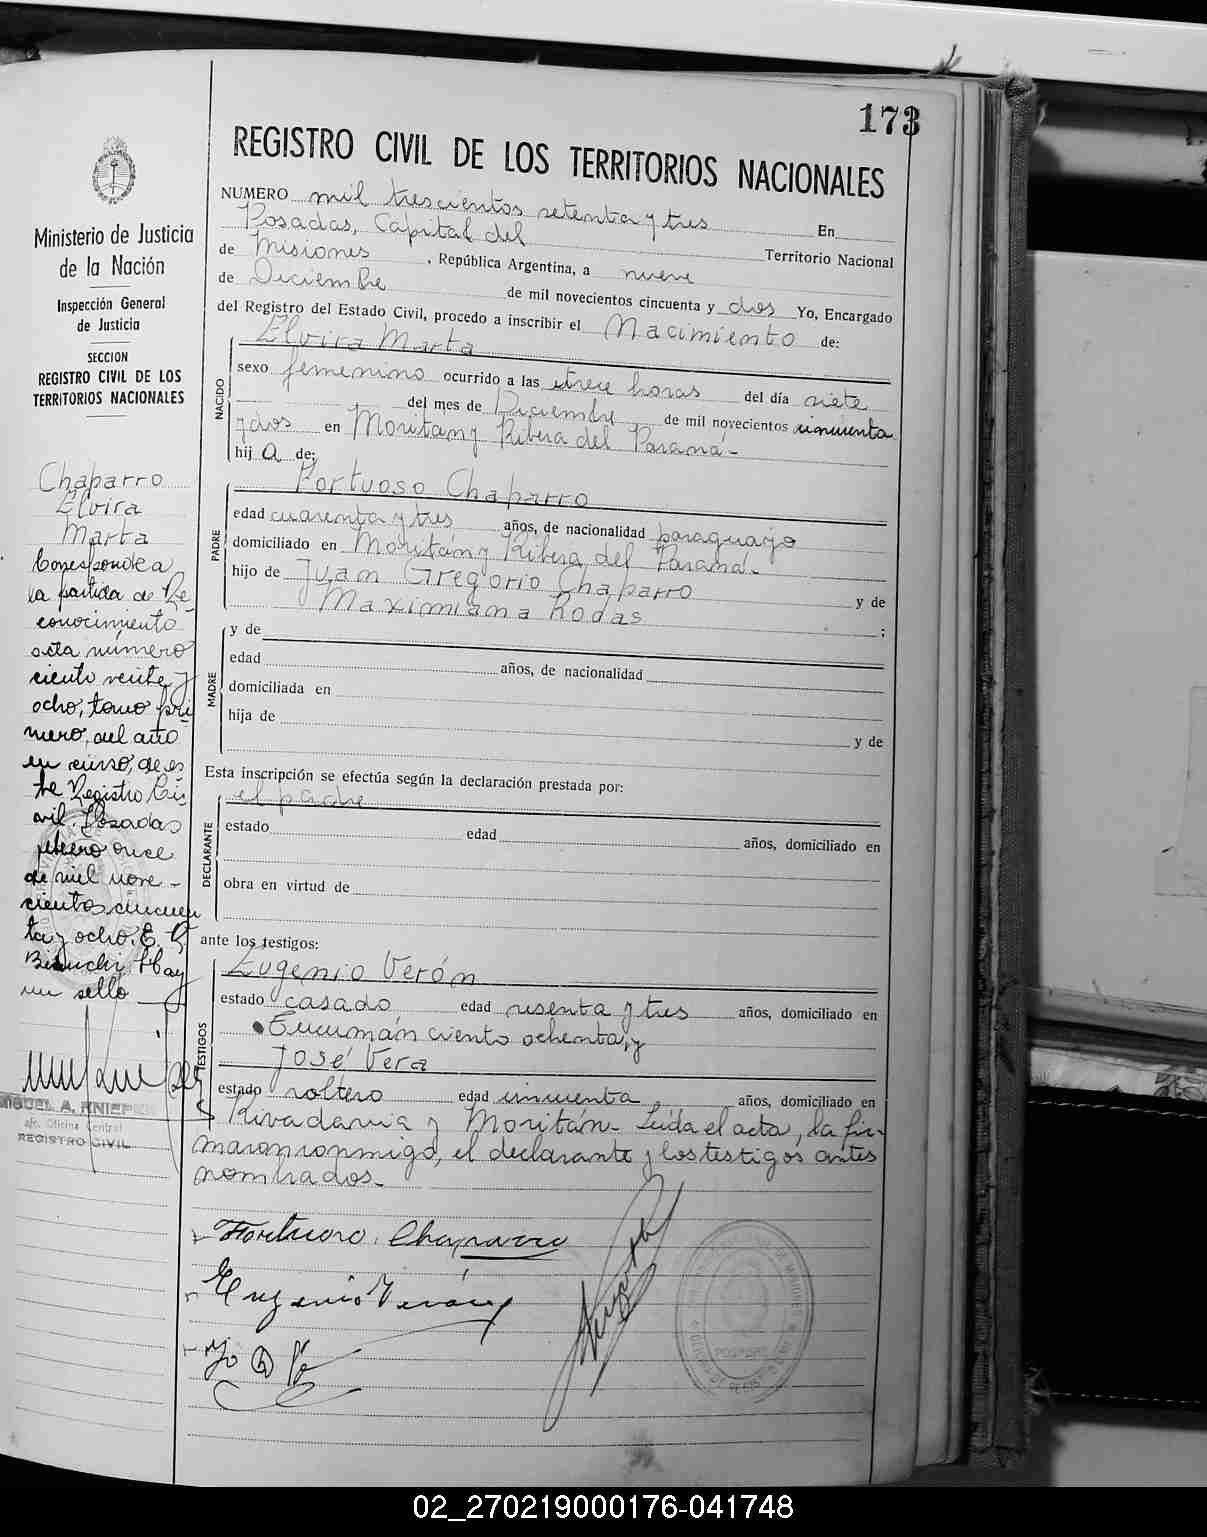 173
REGISTRO CIVIL DE LOS TERRITORIOS NACIONALES
Ministerio de Justicia
de la Nación
Inspección General
de Justicia
SECCION
REGISTRO CIVIL DE LOS
TERRITORIOS NACIONALES
Chaparro
Elvira
Marta
Corresponde a
la partida de Re-
conocimiento
acta número
ciento veinte y
ocho, tomo pri
mero, del año
en curso, de es
te Registro Ci-
vil. Posadas
once
de mil nove-
cientos cincuen
ta y ocho. E. G.
Bianchi. Hay
un sello
MIGUEL A. KNIEPER
Oficina Central
REGISTRO CIVIL
NUMERO mil trescientos setenta y tres En
Posadas, Capital del Territorio Nacional
de Misiones, República Argentina, a nueve
de Diciembre de mil novecientos cincuenta y dos Yo, Encargado
del Registro del Estado Civil, procedo a inscribir el Nacimiento de:
NACIDO
Elvira Marta
sexo femenino ocurrido a las trece horas del día siete
del mes de Diciembre de mil novecientos cincuenta
y dos en Moritán y Ribera del Paraná-
hija de:
PADRE
Fortuoso Chaparro
edad cuarenta y tres años, de nacionalidad paraguayo
domiciliado en Moritán y Ribera del Paraná-
hijo de Juan Gregorio Chaparro y de
Maximiana Rodas ;
MADRE
y de
edad años, de nacionalidad
domiciliada en
hija de
y de
Esta inscripción se efectúa según la declaración prestada por:
DECLARANTE
el padre
estado edad años, domiciliado en
obra en virtud de
ante los testigos:
TESTIGOS
Eugenio Verón
estado casado edad sesenta y tres años, domiciliado en
Tucumán ciento ochenta, y
José Vera
estado soltero edad cincuenta años, domiciliado en
Rivadavia y Moritán- Leída el acta, la fir-
maron conmigo, el declarante y los testigos antes
nombrados-
Fortuoso Chaparro
Eugenio Verón
02_270219000176-041748